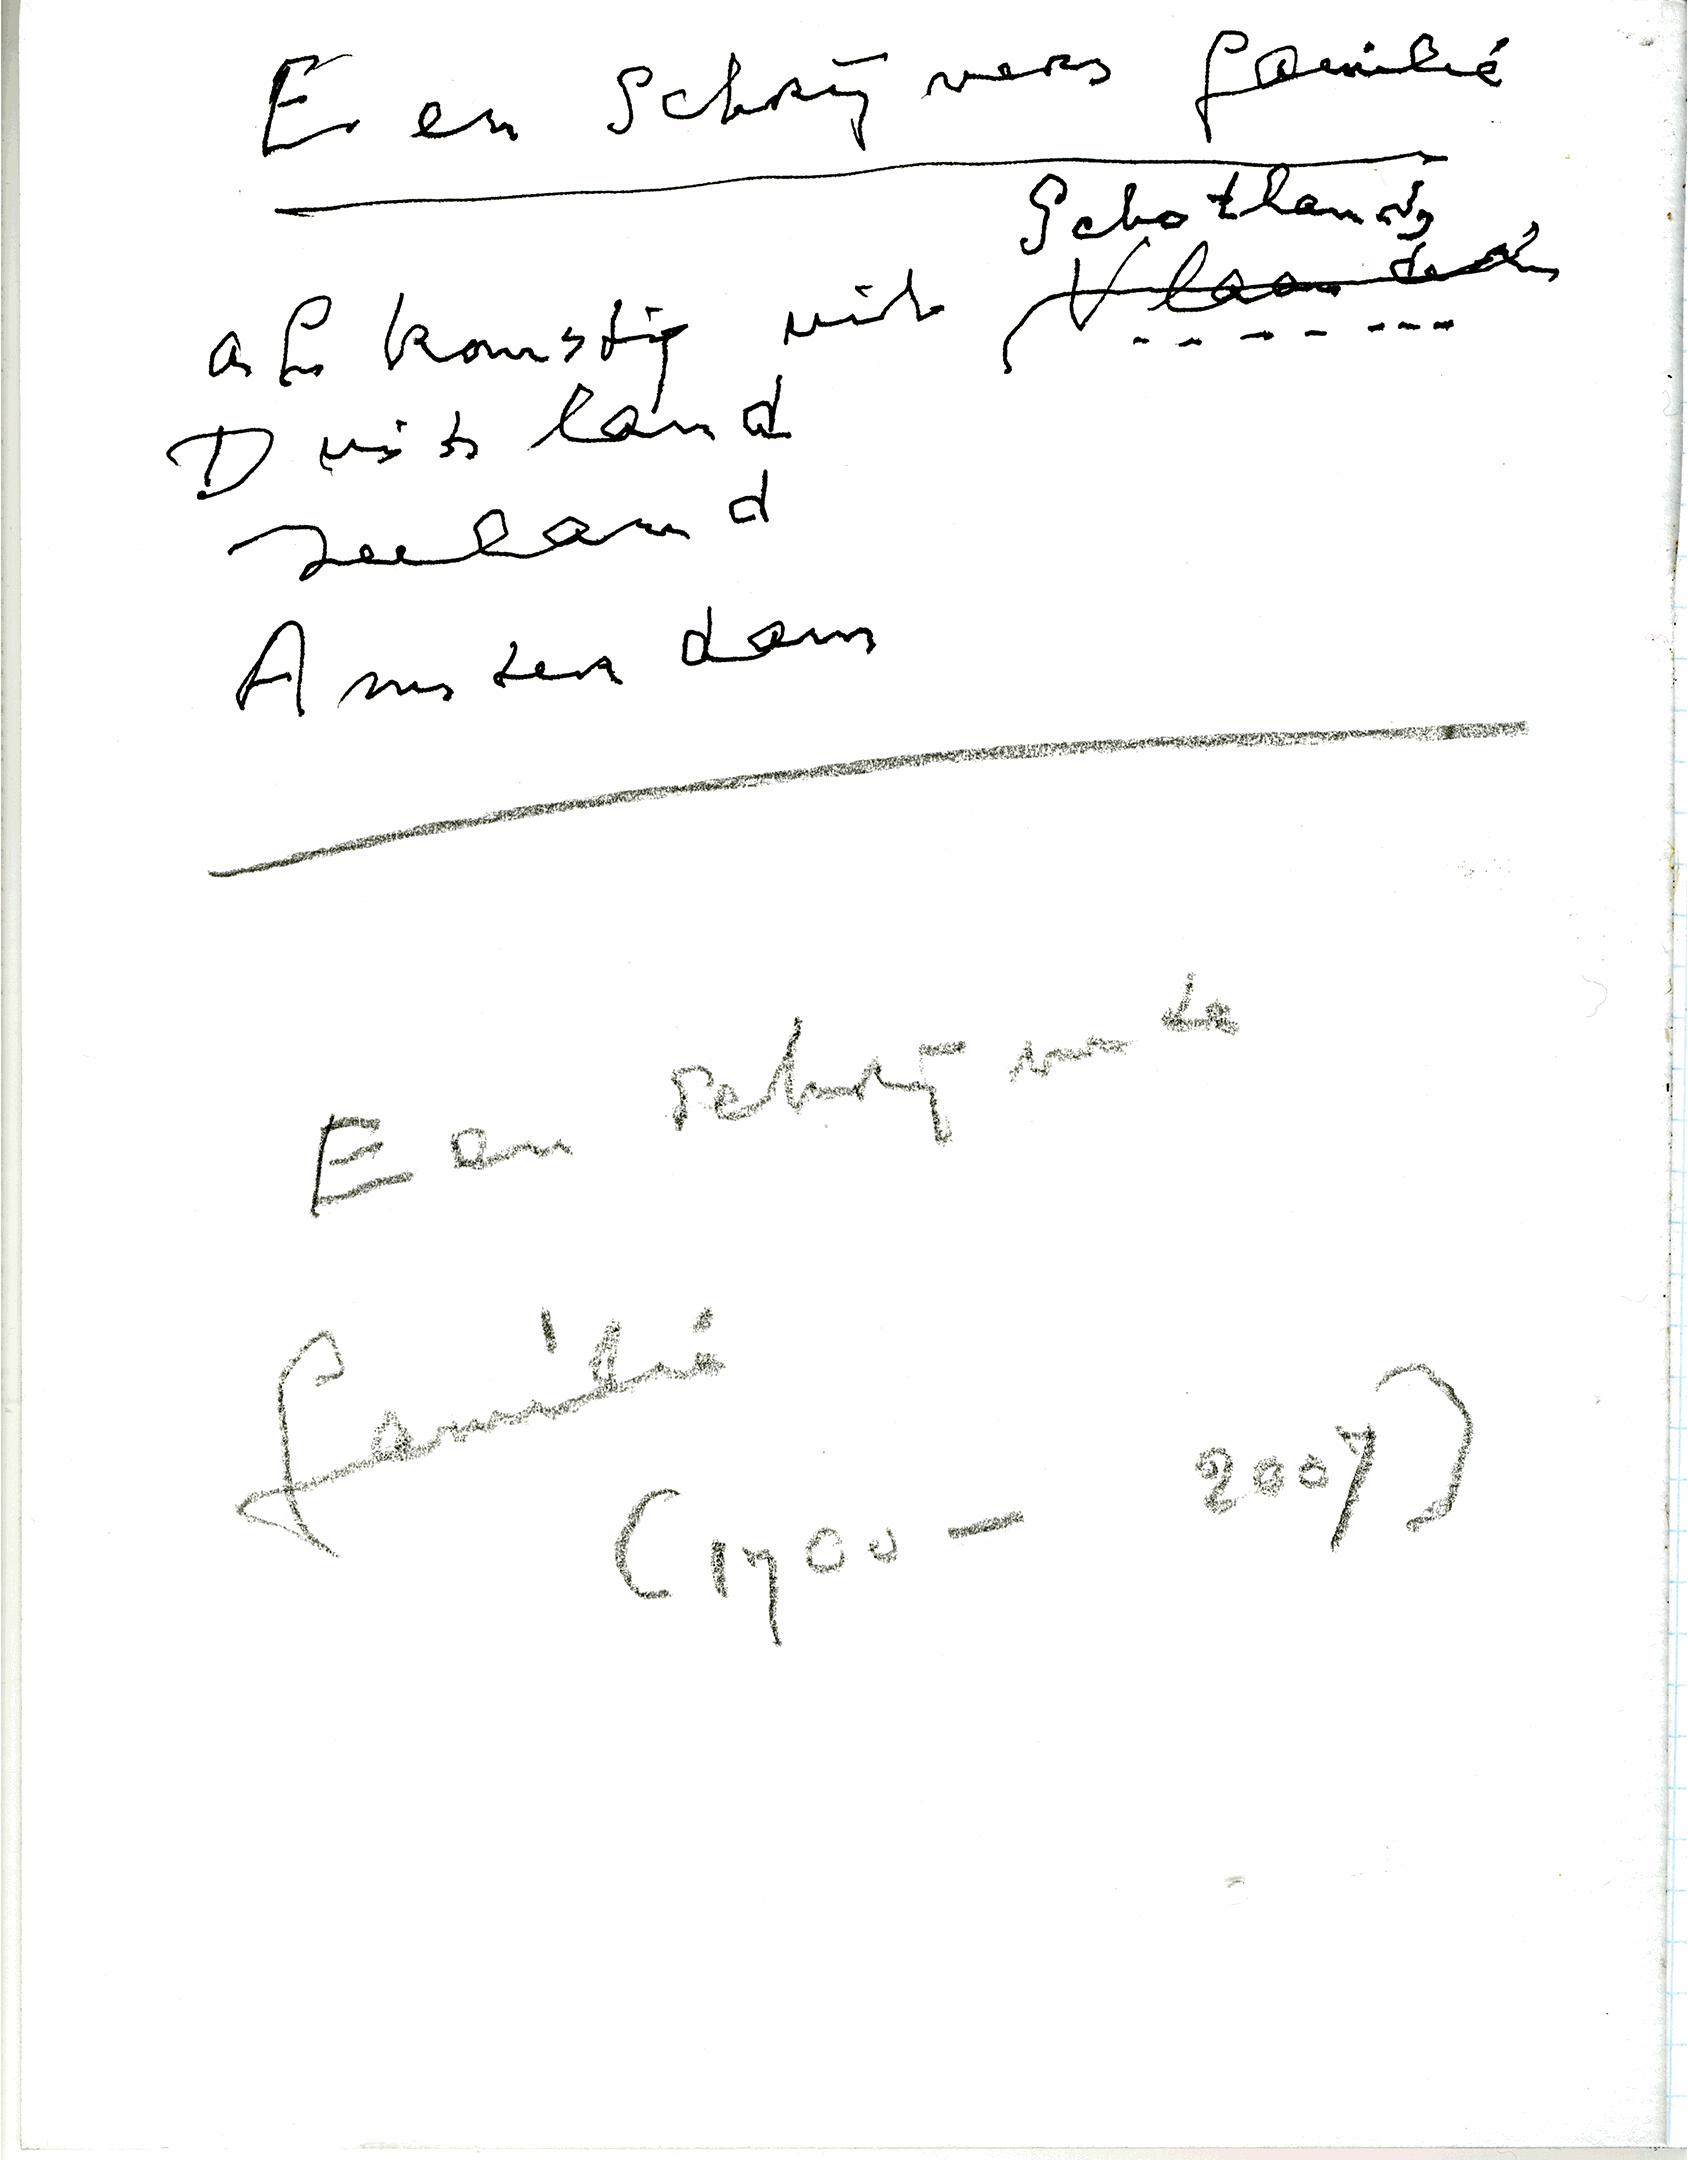 Een Schrijvers familie
Schotland
afkomstig uit Vlaanderen
Duitsland
Zeeland
Amsterdam
Een schrijvende
familie
(1700 - 2007)